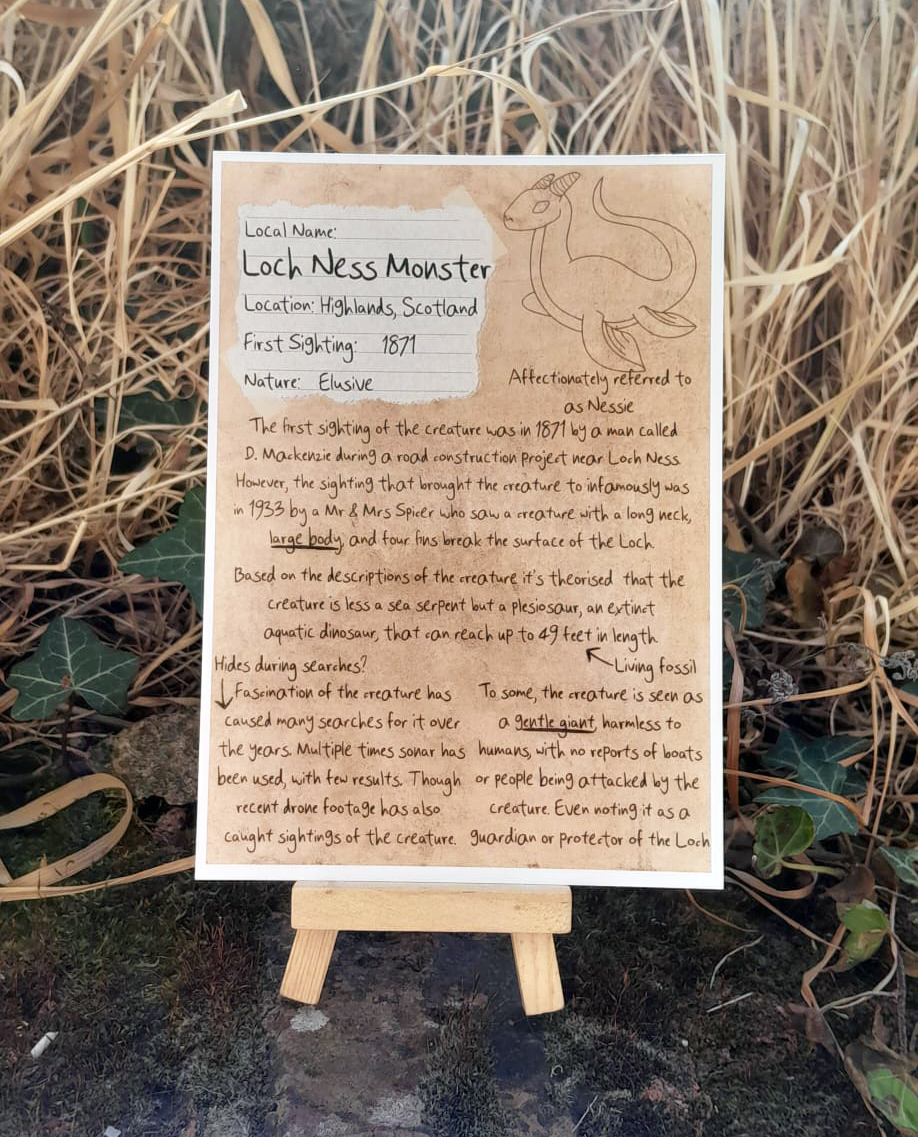 Local Name:
Loch Ness Monster
Location: Highlands, Scotland
First Sighting: 1871
Nature: Elusive
Affectionately referred to
as Nessie
The first sighting of the creature was in 1871 by a man called
D. Mackenzie during a road construction project near Loch Ness.
However, the sighting that brought the creature to infamously was
in 1933 by a Mr & Mrs Spicer who saw a creature with a long neck,
large body, and four fins break the surface of the Loch.
Based on the descriptions of the creature it's theorised that the
creature is less a sea serpent but a plesiosaur, an extinct
aquatic dinosaur, that can reach up to 49 feet in length.
Living fossil
Hides during searches?
Fascination of the creature has
caused many searches for it over
the years. Multiple times sonar has
been used, with few results. Though
recent drone footage has also
caught sightings of the creature.
To some, the creature is seen as
a gentle giant, harmless to
humans, with no reports of boats
or people being attacked by the
creature. Even noting it as a
guardian or protector of the Loch